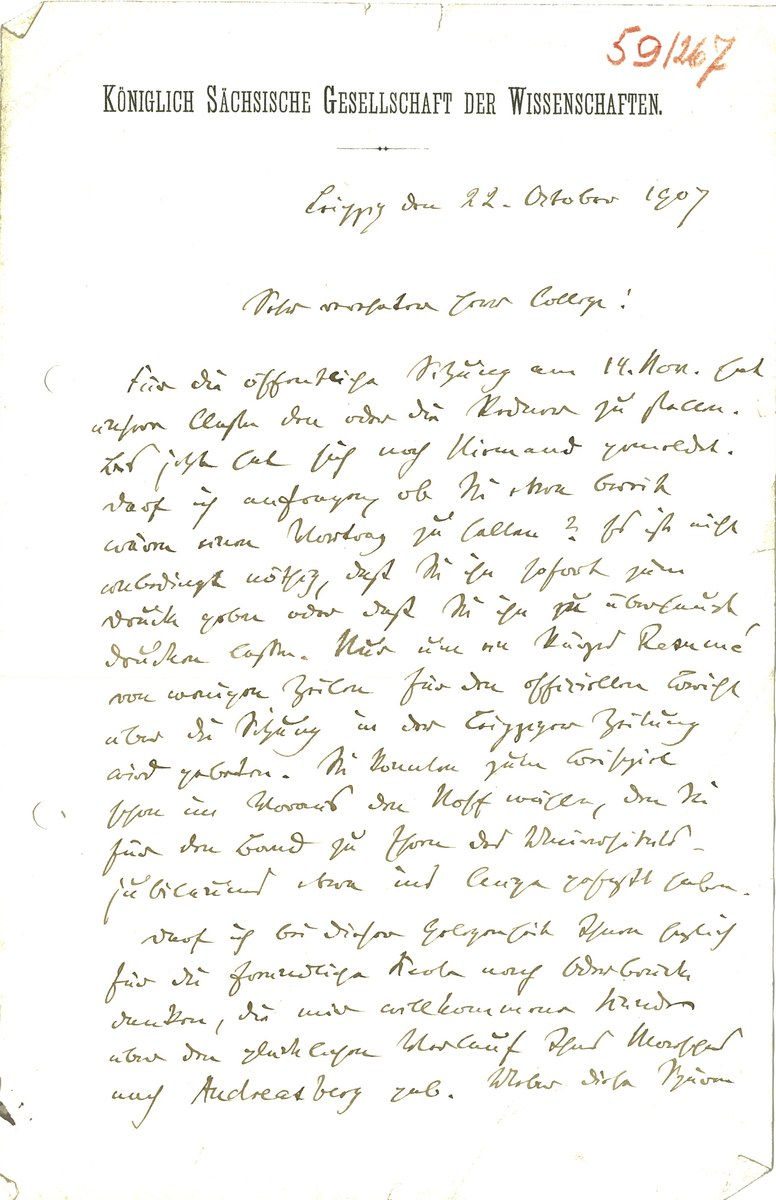 59/267
KÖNIGLICH SÄCHSISCHE GESELLSCHAFT DER WISSENSCHAFTEN.
Leipzig den 22. October 1907
Sehr verehrter Herr College!
Für die öffentliche Sitzung am 14. Nov. hat
unsere Classe den oder die Redner zu stellen.
Bis jetzt hat sich noch Niemand gemeldet.
Darf ich anfragen, ob Sie etwa bereit
wären einen Vortrag zu halten? Es ist nicht
unbedingt nöthig, daß Sie ihn sofort zum
Druck geben oder daß Sie ihn zu überhaupt
drucken lassen. Nur um ein kurzes Resumé
von wenigen Zeilen für den officiellen Bericht
über die Sitzung in der Leipziger Zeitung
wird gebeten. Sie könnten zum Beispiel
schon im Voraus den Stoff wählen, den Sie
für den Band zu Ehren des Universitäts-
jubiläums etwa ins Auge gefaßt haben.
Darf ich bei dieser Gelegenheit Ihnen herzlich
für die freundliche Karte nach Oderbrück
danken, die mir willkommene Kunde
über den glücklichen Verlauf Ihres Marsches
nach Andreasberg gab. Ueber diese